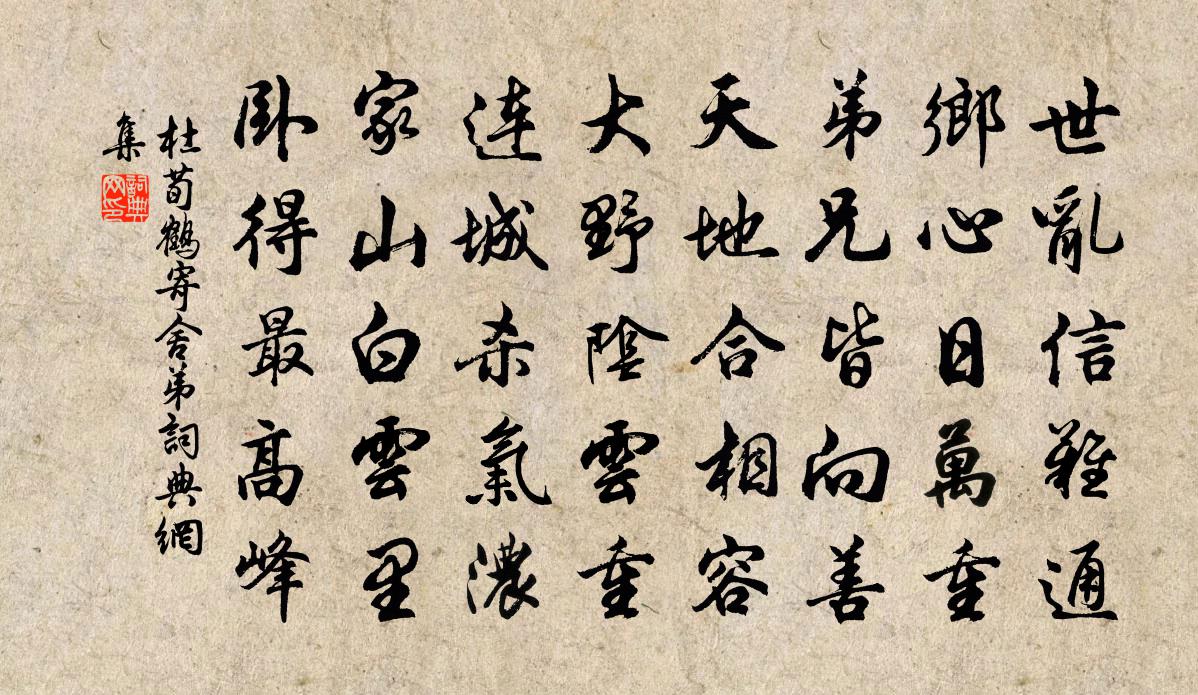 世亂信難通
鄉心日萬重
弟兄皆向善
天地合相容
大野陰雲重
連城杀氣濃
家山白雲里
卧得最高峰
杜荀鶴寄舍弟詞典網
集
詞典
网印